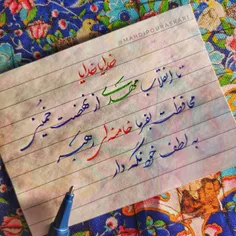 @MAHDIPOURAKBARI
خدایا خدایا
تا انقلاب مهدی از نهضت خمینی
محافظت بفرما خامنه‌ای رهبر
به لطف خود نگه دار